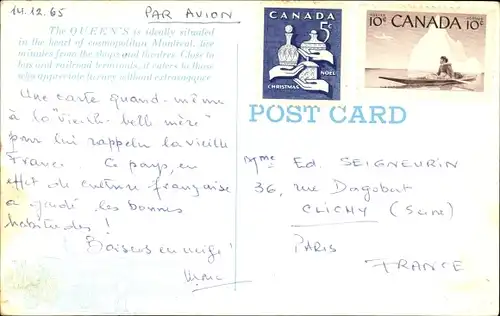 14.12.65
PAR AVION
The QUEEN'S is ideally situated
in the heart of cosmopolitan Montreal, five
minutes from the shops and theatres. Close to
bus and railroad terminals, it caters to those
who appreciate luxury without extravagance
CANADA
5c
NOËL
CHRISTMAS
POSTES POSTAGE
10c
CANADA
10c
POST CARD
Une carte quand-même
à la "vieille belle mère"
pour lui rappeler la vieille
France. Ce pays, en
effet de culture française
a gardé les bonnes
habitudes !
Baisers en neige !
Mme Ed. SEIGNEURIN
36, rue Dagobert
CLICHY (Seine)
PARIS
FRANCE